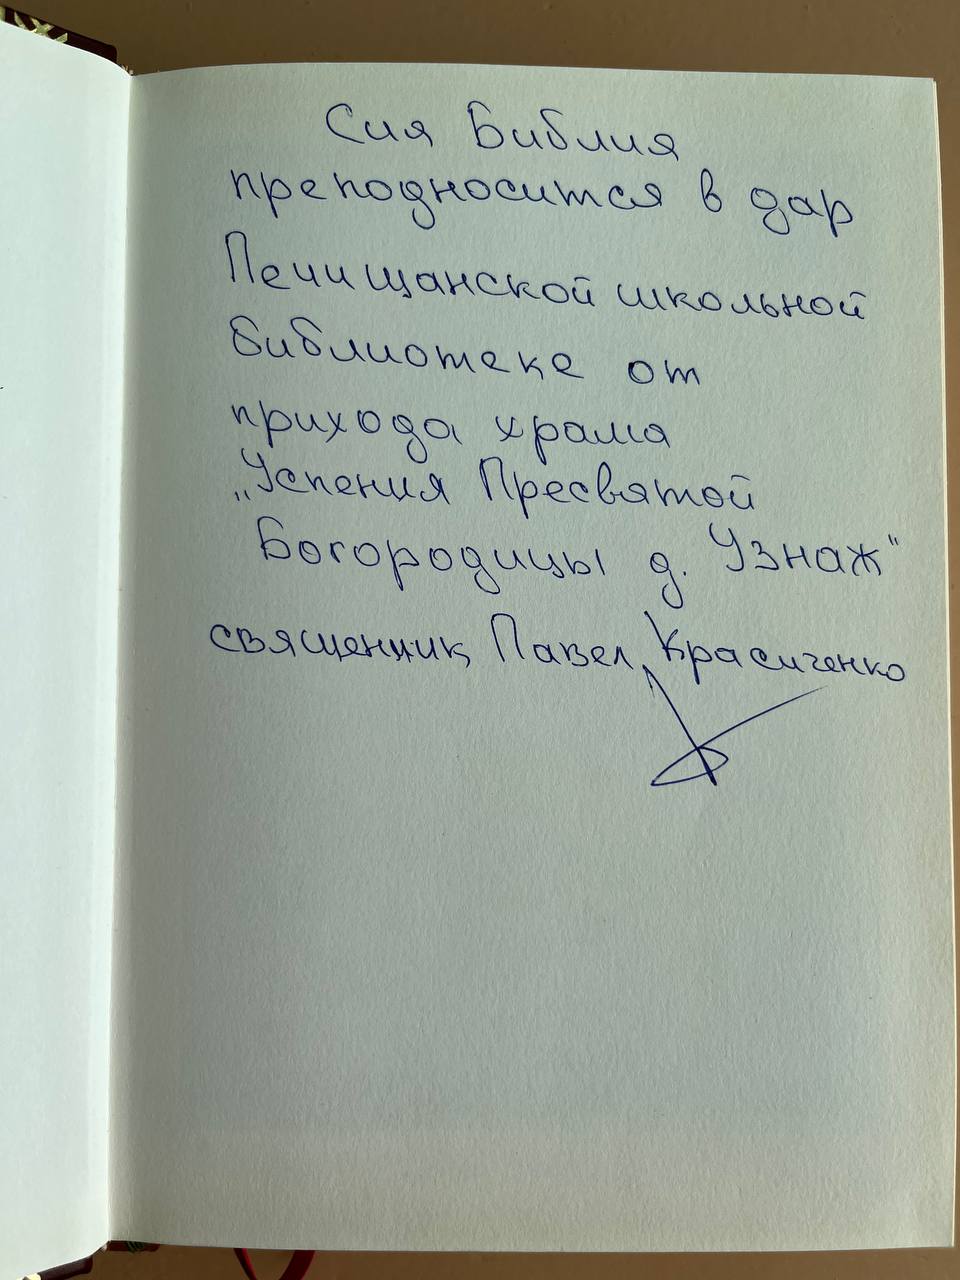 Сия Библия
преподносится в дар
Печищанской школьной
библиотеке от
прихода храма
„Успения Пресвятой
Богородицы д. Узнаж"
священник Павел Красиченко